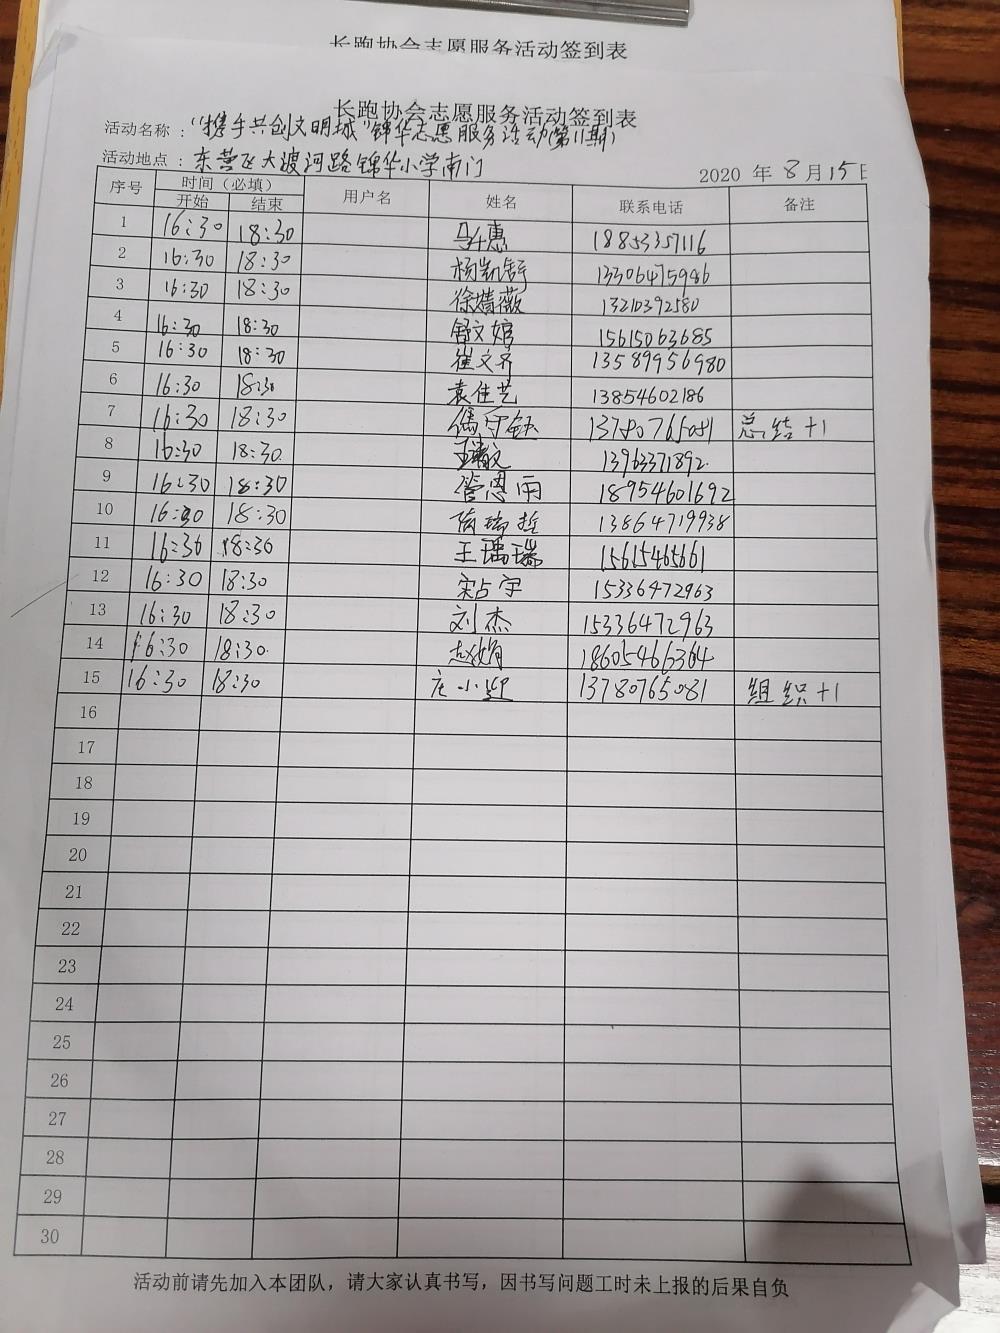 长跑协会志愿服务活动签到表
长跑协会志愿服务活动签到表
活动名称："携手共创文明城"锦华志愿服务活动(第11期)
活动地点：东营区大渡河路锦华小学南门 2020 年 8 月 15 日
序号 时间（必填） 用户名 姓名 联系电话 备注
开始 结束
1 16:30 18:30 18853357116
2 16:30 18:30 杨凯舒 13306475986
3 16:30 18:30 徐嫱薇 13210392580
4 16:30 18:30 舒文婠 15615063685
5 16:30 18:30 崔文齐 13589956980
6 16:30 18:30 袁佳艺 13854602186
7 16:30 18:30 13780765081 总结+1
8 16:30 18:30 13963371892
9 16:30 18:30 管恩雨 18954601692
10 16:30 18:30 13864719938
11 16:30 18:30 王瑀瑞 15615465661
12 16:30 18:30 宋占宇 15336472963
13 16:30 18:30 刘杰 15336472963
14 16:30 18:30 赵娟 18605466364
15 16:30 18:30 庄小 13780765081 组织+1
16
17
18
19
20
21
22
23
24
25
26
27
28
29
30
活动前请先加入本团队，请大家认真书写，因书写问题工时未上报的后果自负